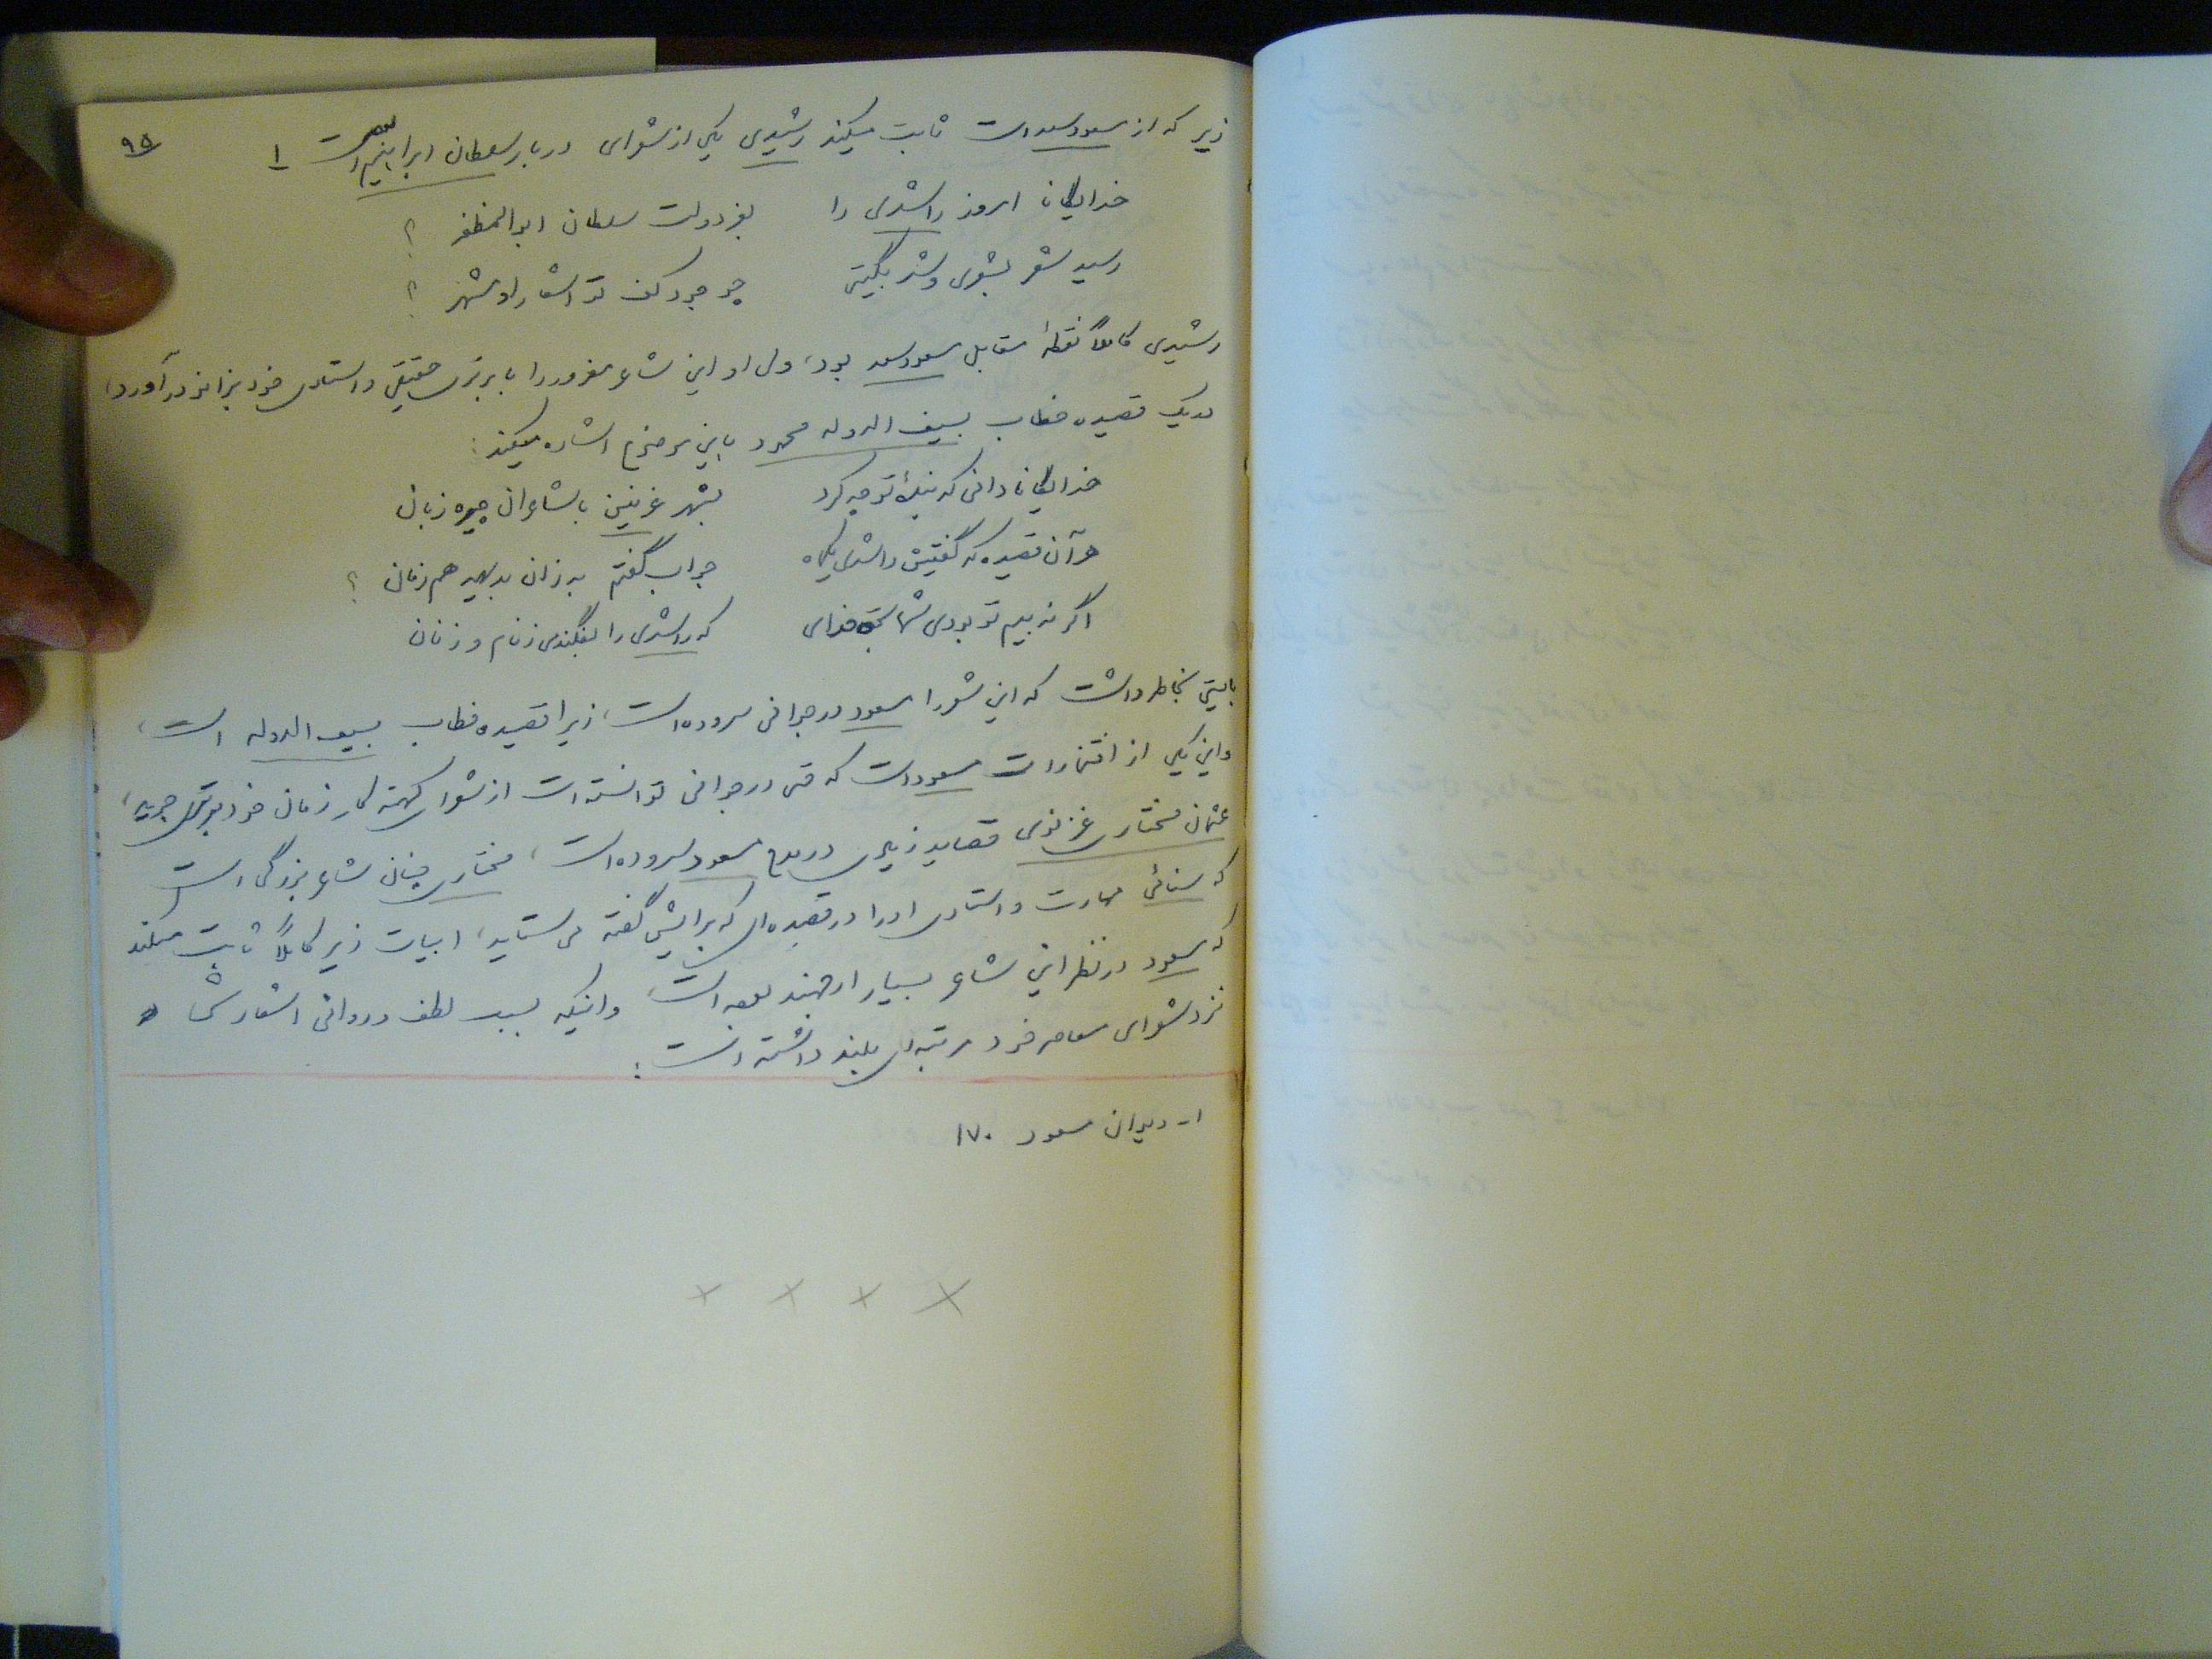 ۹۵
زیر که از مسعود سعد است ثابت میکند رشیدی یکی از شعرای دربار سلطان ابراهیم بوده است ۱
خدایگانا امروز راشدی را بفر دولت سلطان ابوالمظفر ؟
رسید شعر بشعری و شد بگیتی چو جود کف تو اشعار او مشهر ؟
رشیدی کاملاً نقطهٔ مقابل مسعود سعد بود، ولی او این شاعر مغرور را با برتری حقیقی و استادی خود بزانو درآورد،
در یک قصیده خطاب بسیف الدوله محمود باین موضوع اشاره میکند:
خدایگانا دانی که بندهٔ تو چه کرد بشهر غزنین با شاعران چیره زبان
هر آن قصیده که گفتیش راشدی یکماه جواب گفتم به زان بدیهه هم زمان ؟
اگر نه بیم تو بودی شها بحق خدای که راشدی را بفگندمی ز نام و ز نان
بایستی بخاطر داشت که این شعر را مسعود در جوانی سروده است، زیرا قصیده خطاب بسیف الدوله است،
و این یکی از افتخارات مسعود است که حتی در جوانی توانسته است از شعرای کهنه کار زمان خود برتری جوید،
عثمان مختاری غزنوی قصاید زیادی در مدح مسعود سروده است، مختاری چنان شاعر بزرگی است
که سنائی مهارت و استادی او را در قصیده ای که برایش گفته می ستاید، ابیات زیر کاملاً ثابت میکند
که مسعود در نظر این شاعر بسیار ارجمند بوده است، و اینکه بسبب لطف و روانی اشعارش
نزد شعرای معاصر خود مرتبه ای بلند داشته است:
۱- دیوان مسعود ۱۷۰
× × × ×